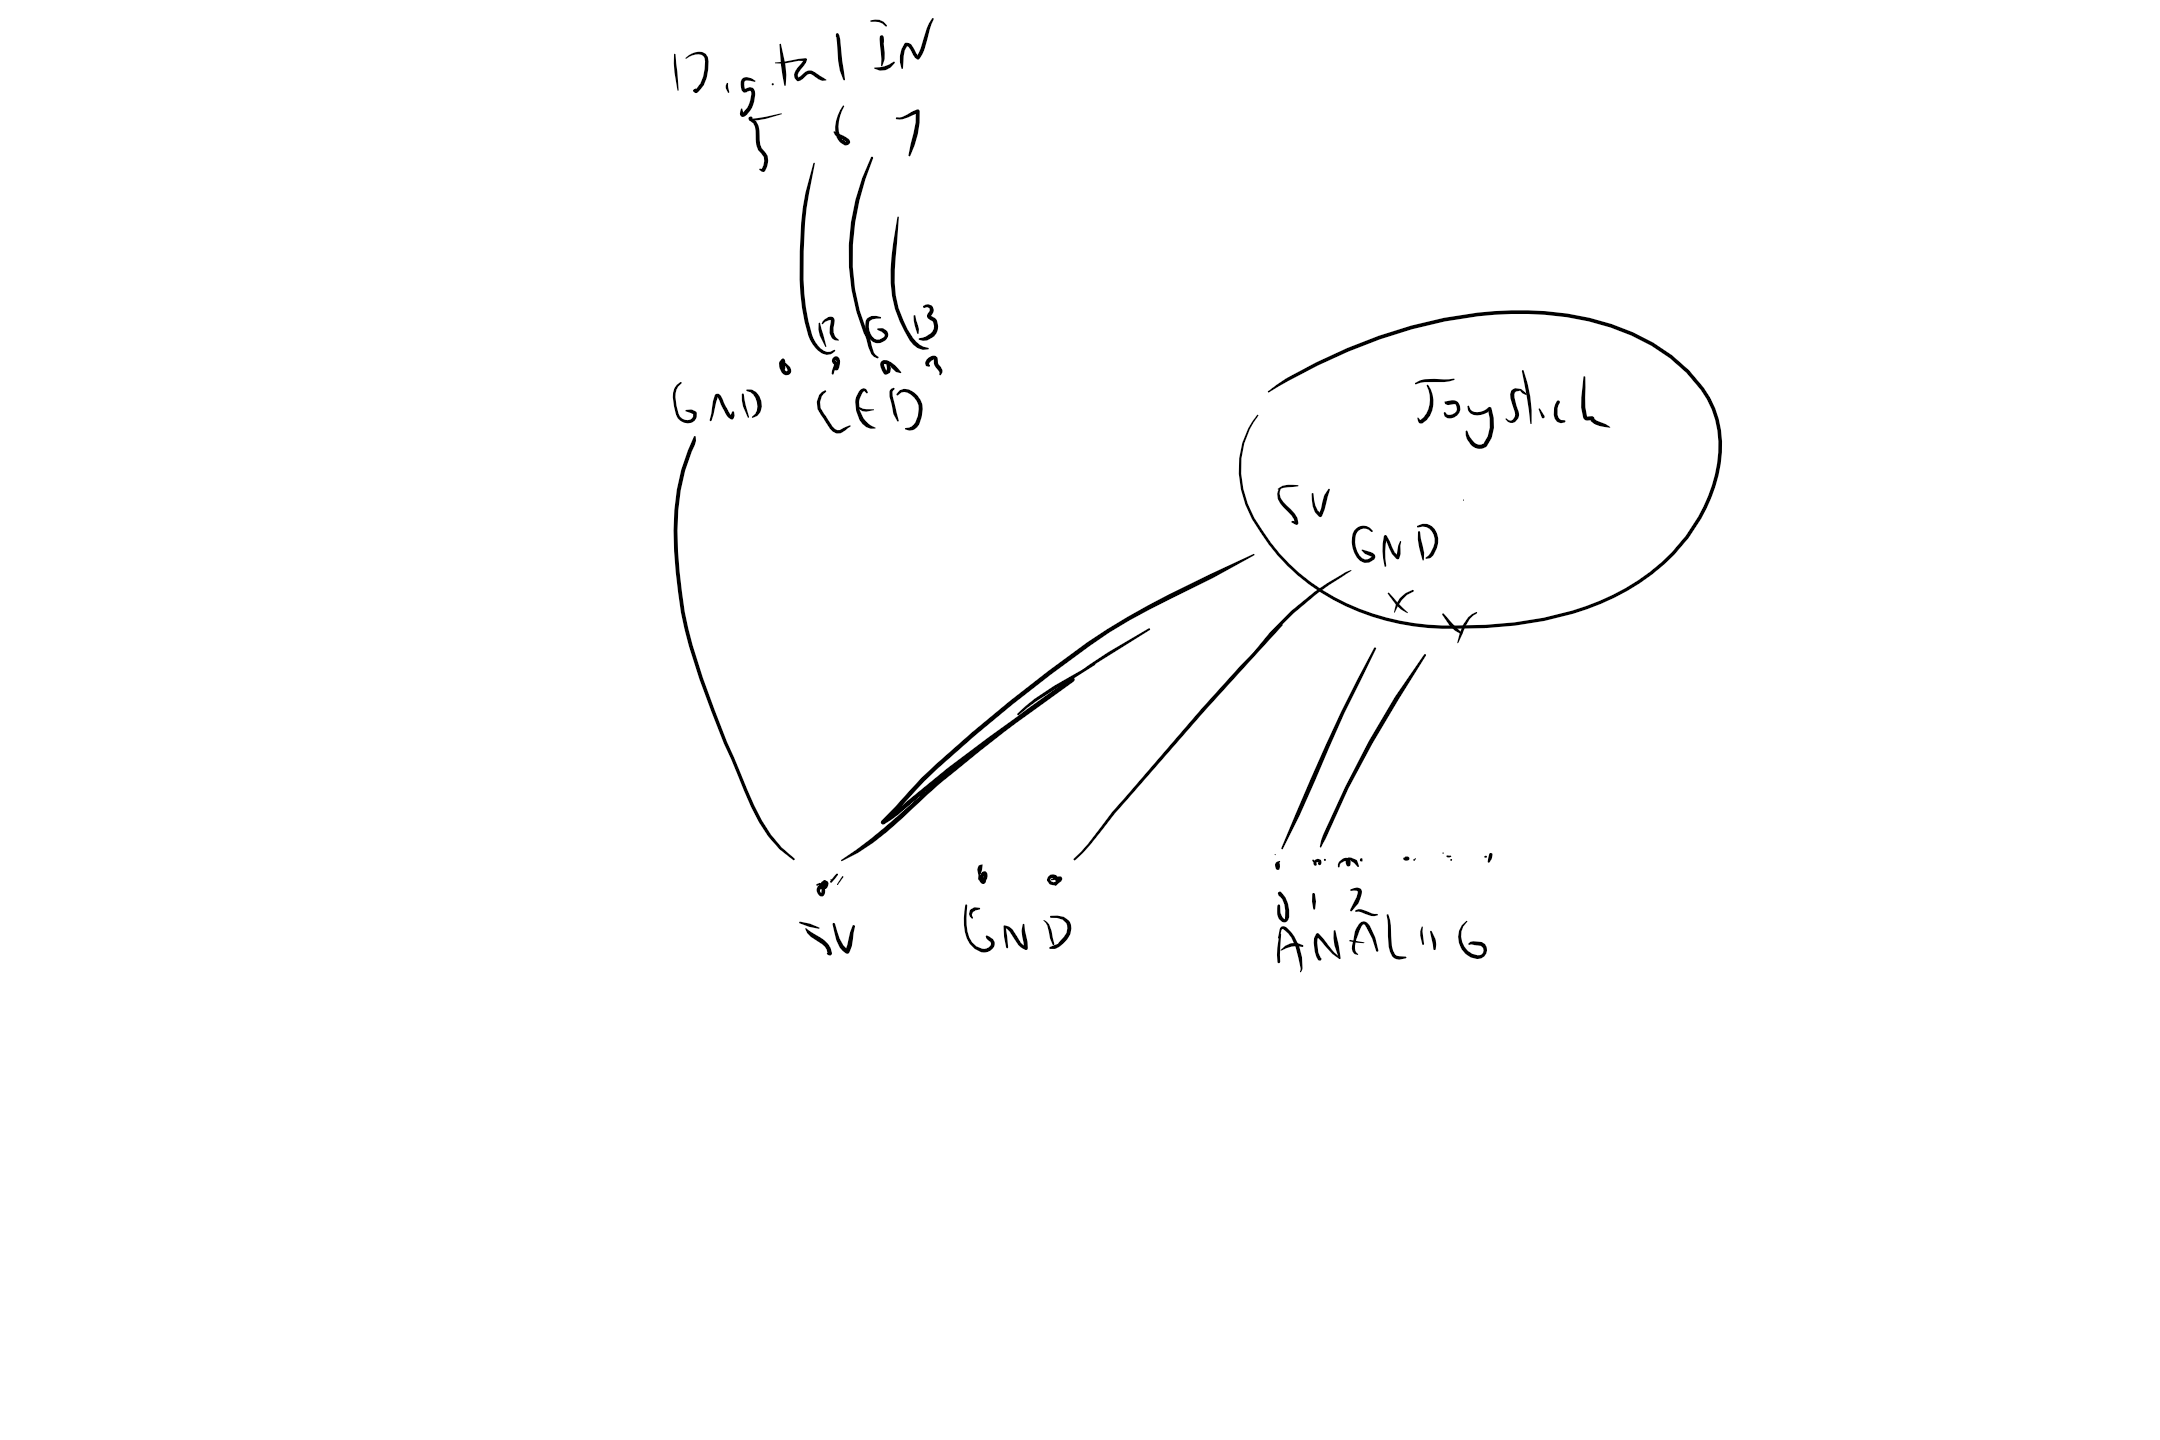 Digital IN
5 6 7
R G B
GND LED
Joystick
5V
GND
X
Y
5V GND
0 1 2
ANALOG